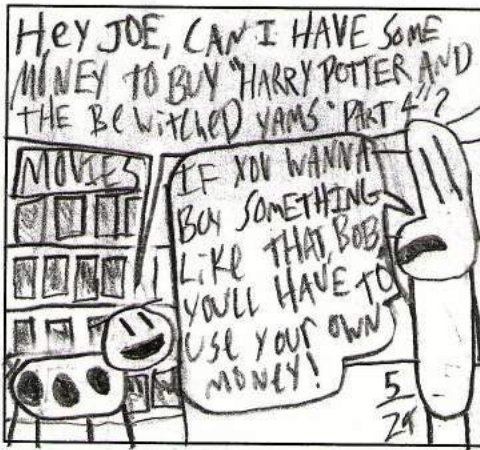 HEY JOE, CAN I HAVE SOME
MONEY TO BUY "HARRY POTTER AND
THE BEWITCHED YAMS" PART 4"?
MOVIES
IF YOU WANNA
BUY SOMETHING
LIKE THAT, BOB,
YOULL HAVE TO
USE YOUR OWN
MONEY!
5
29